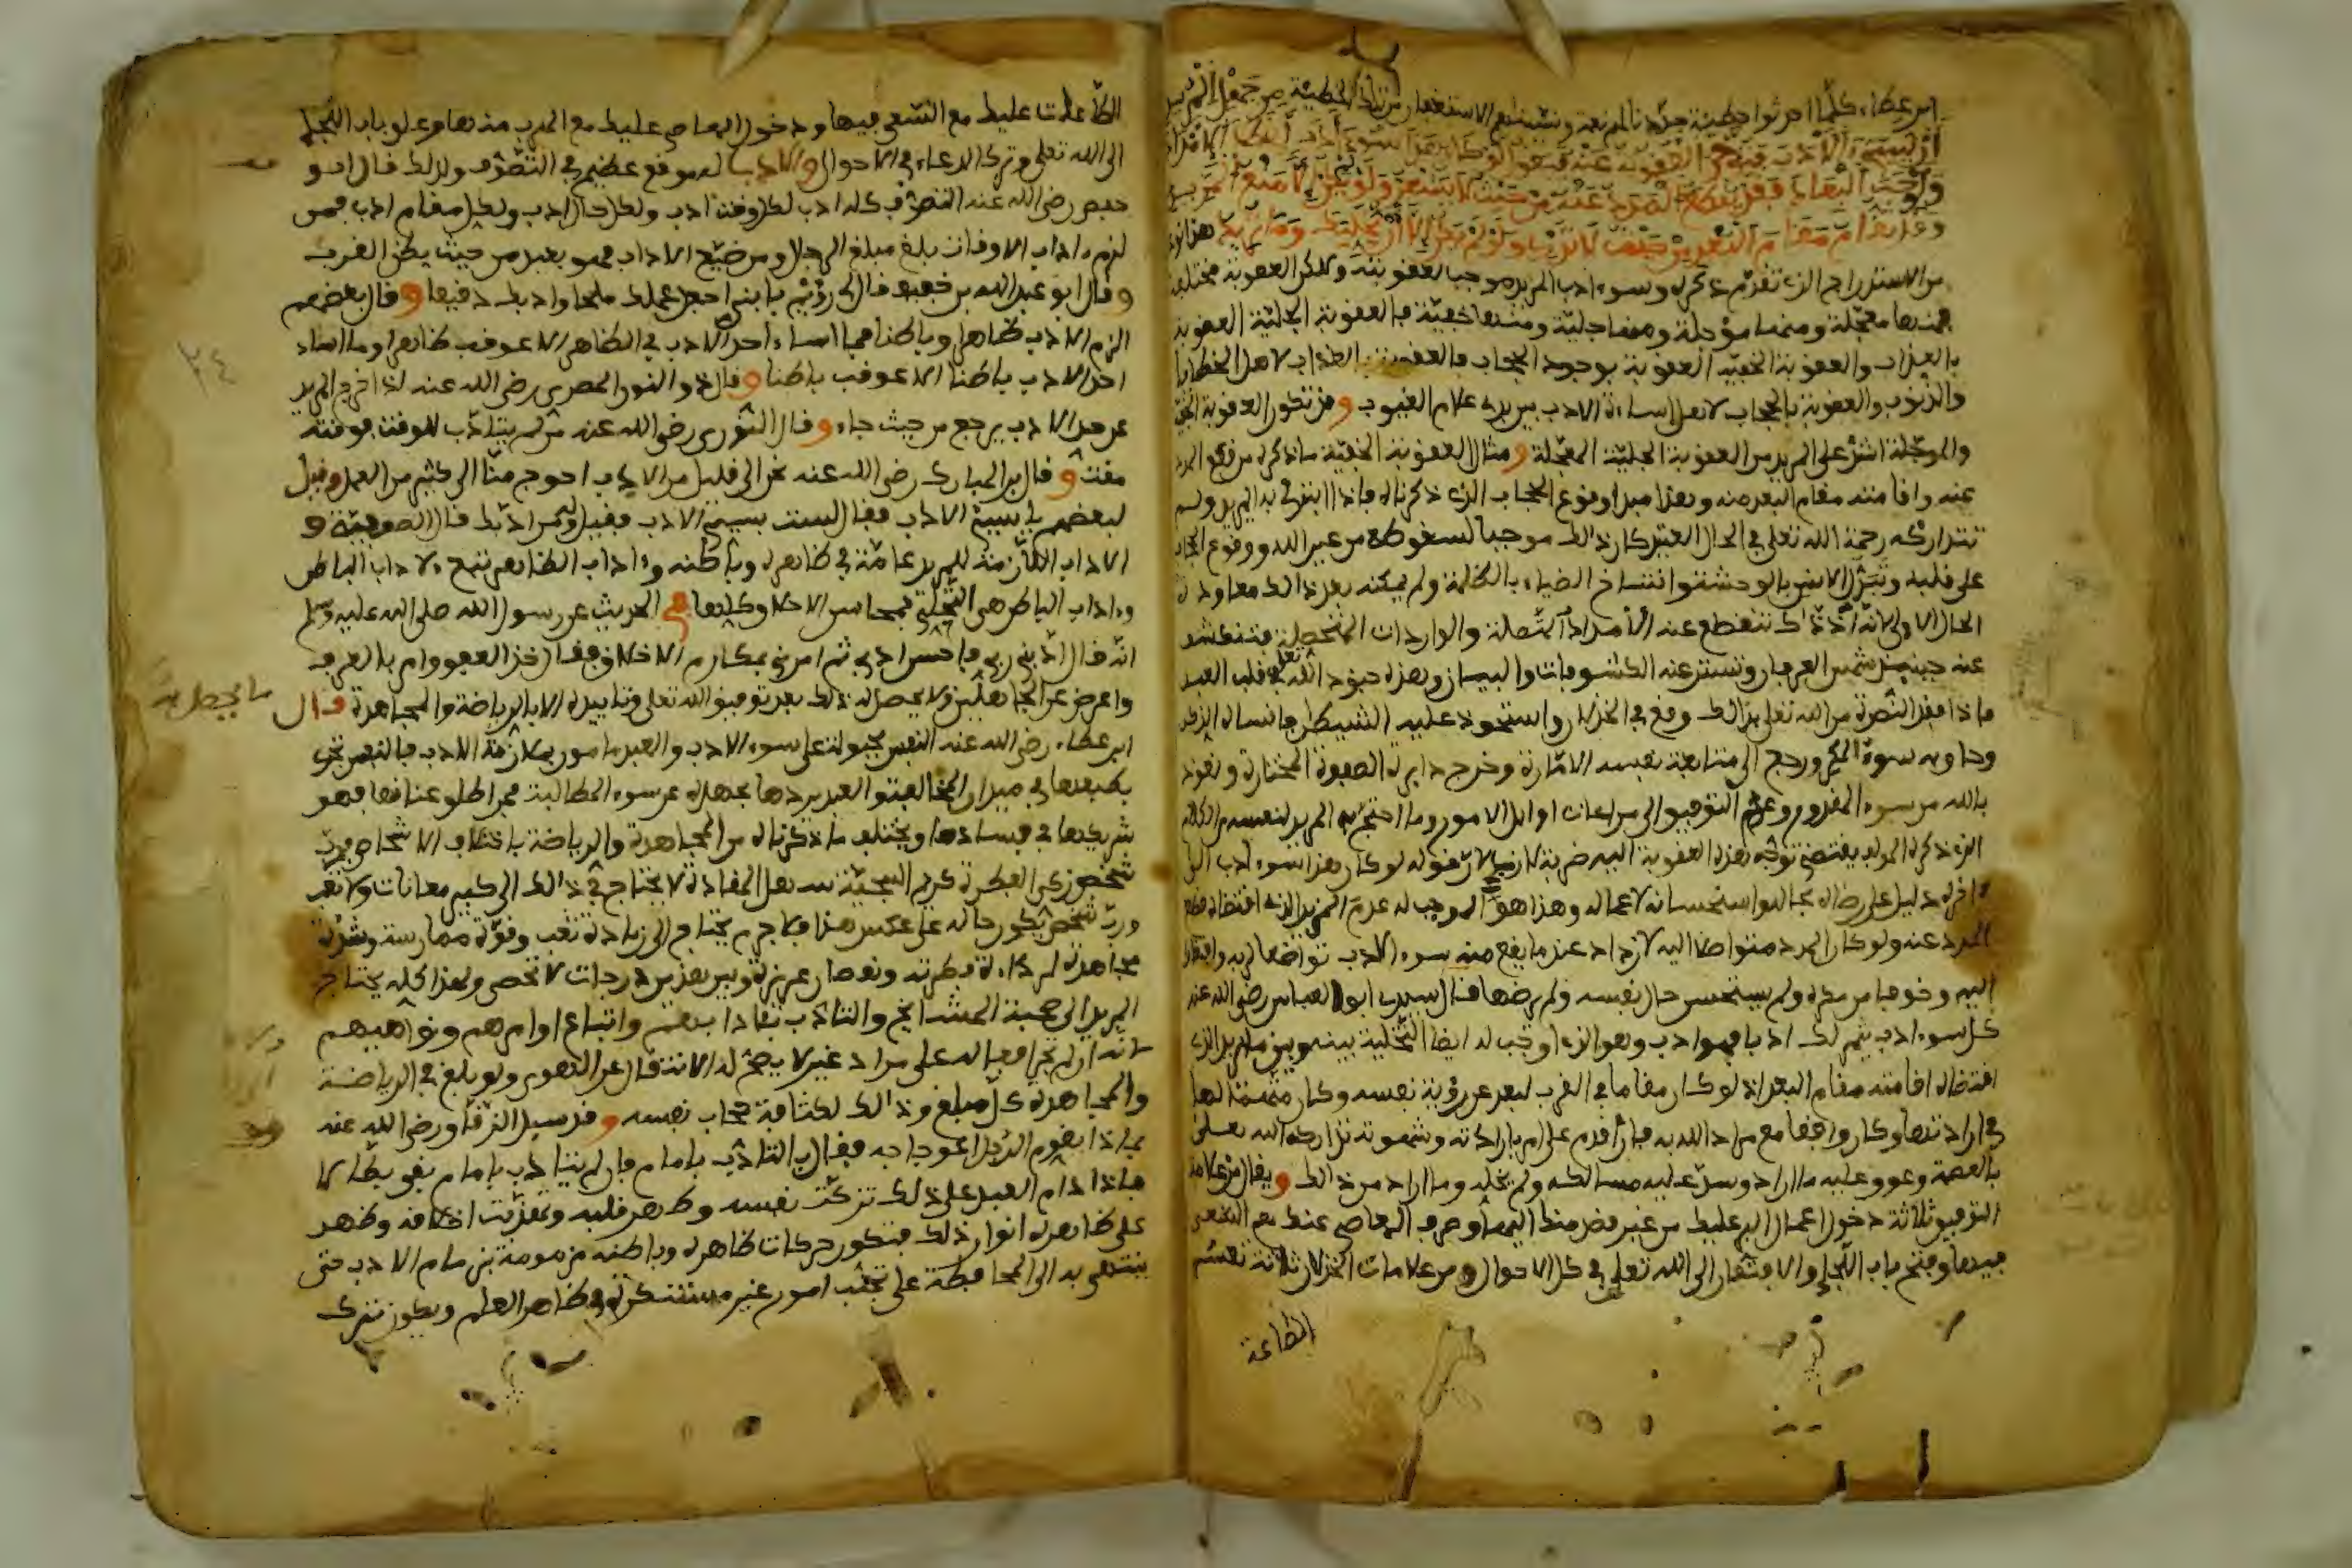 ابن عطاء كلما احدثوا خطيئة جددنا لهم نعمة ونسيناهم الاستغفار من تلك الخطيئة من جهل المريد
ان يسيء الادب فتؤخر العقوبة عنه فيقول لو كان هذا سوء ادب لقطع الامداد
واوجب البعاد فقد يقطع المدد عنه من حيث لا يشعر ولو لم يكن الا منع المزيد
وقد يقام مقام البعد من حيث لا يدري ولو لم يكن الا ان يخليك وما تريد هذا الامر
من الاستدراج الذي تقدم ذكره وسوء ادب المريد موجب لعقوبته ولكن العقوبة مختلفة
فمنها معجلة ومنها مؤجلة ومنها جلية ومنها خفية فالعقوبة الجلية العقوبة
بالعذاب والعقوبة الخفية العقوبة بوجود الحجاب فالعقوبة بالعذاب لاهل الخطايا
والذنوب والعقوبة بالحجاب لاهل اساءة الادب بين يدي علام الغيوب وقد تكون العقوبة الخفية
والمؤجلة اشد على المريد من العقوبة الجلية المعجلة ومثال العقوبة الخفية ما ذكره من قطع المدد
عنه واقامته مقام البعد منه وهذا مبدا وقوع الحجاب الذي ذكرناه فاذا ابتلي به المريد ولم
تتداركه رحمة الله تعلى في الحال العتيد كان ذلك موجبا لسقوطه من عين الله ووقوع الحجاب
على قلبه وتبدل الانس بالوحشة وانتساخ الضياء بالظلمة ولم يمكنه بعد ذالك معاودة
الحال الاولى لانه اذ ذاك تنقطع عنه الامداد المتصلة والواردات المتحصلة فتنقشع
عنه حينئذ شمس العرفان وتستتر عنه الكشوفات والبيان وهذه جنود الله تعلى في قلب العبد
فاذا فقد النصرة من الله تعلى بذالك وقع في الخذلان واستحوذ عليه الشيطان فانساه الذكر
وحاق به سوء المكر ورجع الى متابعة نفسه الامارة وخرج من دايرة الصفوة المختارة ونعوذ
بالله من سوء المقدور وعدم التوفيق الى مراعات اوائل الامور وما احتج به المريد لنفسه من الكلام
الذي ذكره المولف يقتضي توجه هذه العقوبة اليه ضربة لازب لان قوله لو كان هذا سوء ادب الى
ءاخره دليل على رضاه بحاله واستحسانه لاعماله وهذا هو الموجب له عدم المزيد الذي اقتضاه قطع
المدد عنه ولو كان المدد متواصلا اليه لازداد عندما يقع منه سوء الادب تواضعا لربه وافتقارا
اليه وخوفا من مكره ولم يستحسن حال نفسه ولم يرضها قال سيدي ابو العباس رضي الله عنه
كل سوء ادب يثمر لك ادبا فهو ادب وهو الذي اوجب له ايضا التخلية بينه وبين ما يريد الذي
اقتضاه اقامته مقام البعد اذ لو كان مقاما في القرب لبعد عن رؤية نفسه وكان متهما لها
في ارادتها وكان واقفا مع مراد الله به فان اقدم على امر بارادته وشهوته تداركه الله تعلى
بالعصمة وعوق عليه ما اراد وسد عليه مسالكه ولم يخله وما اراد من ذالك ويقال من علامة
التوفيق ثلاثة دخول اعمال البر عليك من غير قصد منك اليها وصرف المعاصي عنك مع السعي
فيها وفتح باب اللجا والافتقار الى الله تعلى في كل الاحوال ومن علامات الخذلان ثلاثة تعسر
الطاعة
الطاعات عليك مع السعي فيها ودخول المعاصي عليك مع الهرب منها وغلق باب اللجا
الى الله تعلى وترك الدعاء في الاحوال والادب له موقع عظيم في التصوف ولذلك قال ابو
حفص رضي الله عنه التصوف كله ادب لكل وقت ادب ولكل حال ادب ولكل مقام ادب فمن
لزم ءاداب الاوقات بلغ مبلغ الرجال ومن ضيع الاداب فهو بعيد من حيث يظن القرب
وقال ابو عبد الله بن خفيف قال لي رويم يا بني اجعل عملك ملحا وادبك دقيقا وقال بعضهم
الزم الادب ظاهرا وباطنا فما اساء احد الادب في الظاهر الا عوقب ظاهرا وما اساء
احد الادب باطنا الا عوقب باطنا وقال ذو النون المصري رضي الله عنه اذا خرج المريد
عن حد الادب يرجع من حيث جاء وقال الثوري رضي الله عنه من لم يتادب للوقت فوقته
مقت وقال ابن المبارك رضي الله عنه نحن الى قليل من الادب احوج منا الى كثير من العمل وقيل
لبعضهم يا سيئ الادب فقال لست بسيئ الادب فقيل له فمن ادبك قال الصوفية و
الاداب اللازمة للمريد عامة في ظاهره وباطنه وءاداب الظاهر تتبع لاداب الباطن
وءاداب الباطن هي التحلي بمحاسن الاخلاق كلها ففي الحديث عن رسول الله صلى الله عليه وسلم
انه قال ادبني ربي فاحسن ادبي ثم امرني بمكارم الاخلاق فقال خذ العفو وامر بالعرف
واعرض عن الجاهلين ولا يحصل له ذلك بعد توفيق الله تعلى وتاييده الا بالرياضة والمجاهدة قال
ما يحصل به
ابن عطاء رضي الله عنه النفس مجبولة على سوء الادب والعبد مامور بملازمة الادب فالنفس تجري
بطبعها في ميدان المخالفة والعبد يردها بجهده عن سوء المطالبة فمن اطلق عنانها فهو
شريكها في فسادها ويختلف ما ذكرناه من المجاهدة والرياضة باختلاف الاشخاص فرب
شخص زكي الفطرة كريم السجية سهل المقادة لا يحتاج في ذالك الى كبير معانات ولا تعب
ورب شخص يكون حاله على عكس هذا فلا جرم يحتاج الى زيادة تعب وقوة ممارسة وشدة
مجاهدة لرداءة فطرته ونقصان غريزته وبين هذين درجات لا تحصى ولهذا كله يحتاج
المريد الى صحبة المشايخ والتادب بادابهم واتباع اوامرهم ونواهيهم
لانه ان لم تجر افعاله على مراد غيره لا يصح له الانتقال عن الهوى ولو بلغ في الرياضة
والمجاهدة كل مبلغ وذالك لكثافة حجاب نفسه وقد سيل الدقاق رضي الله عنه
بماذا يقوم الرجل اعوجاجه فقال بالتادب بامام فان لم يتادب بامام بقي بطالا
فاذا دام العبد على ذلك تزكت نفسه وطهر قلبه وتهذبت اخلاقه وظهر
على ظاهره انوار ذلك فتكون حركات ظاهره وباطنه مزمومة بزمام الادب حتى
ينتهي به الى المحافظة على تجنب امور غير مستنكرة في ظاهر العلم ويكون ترك